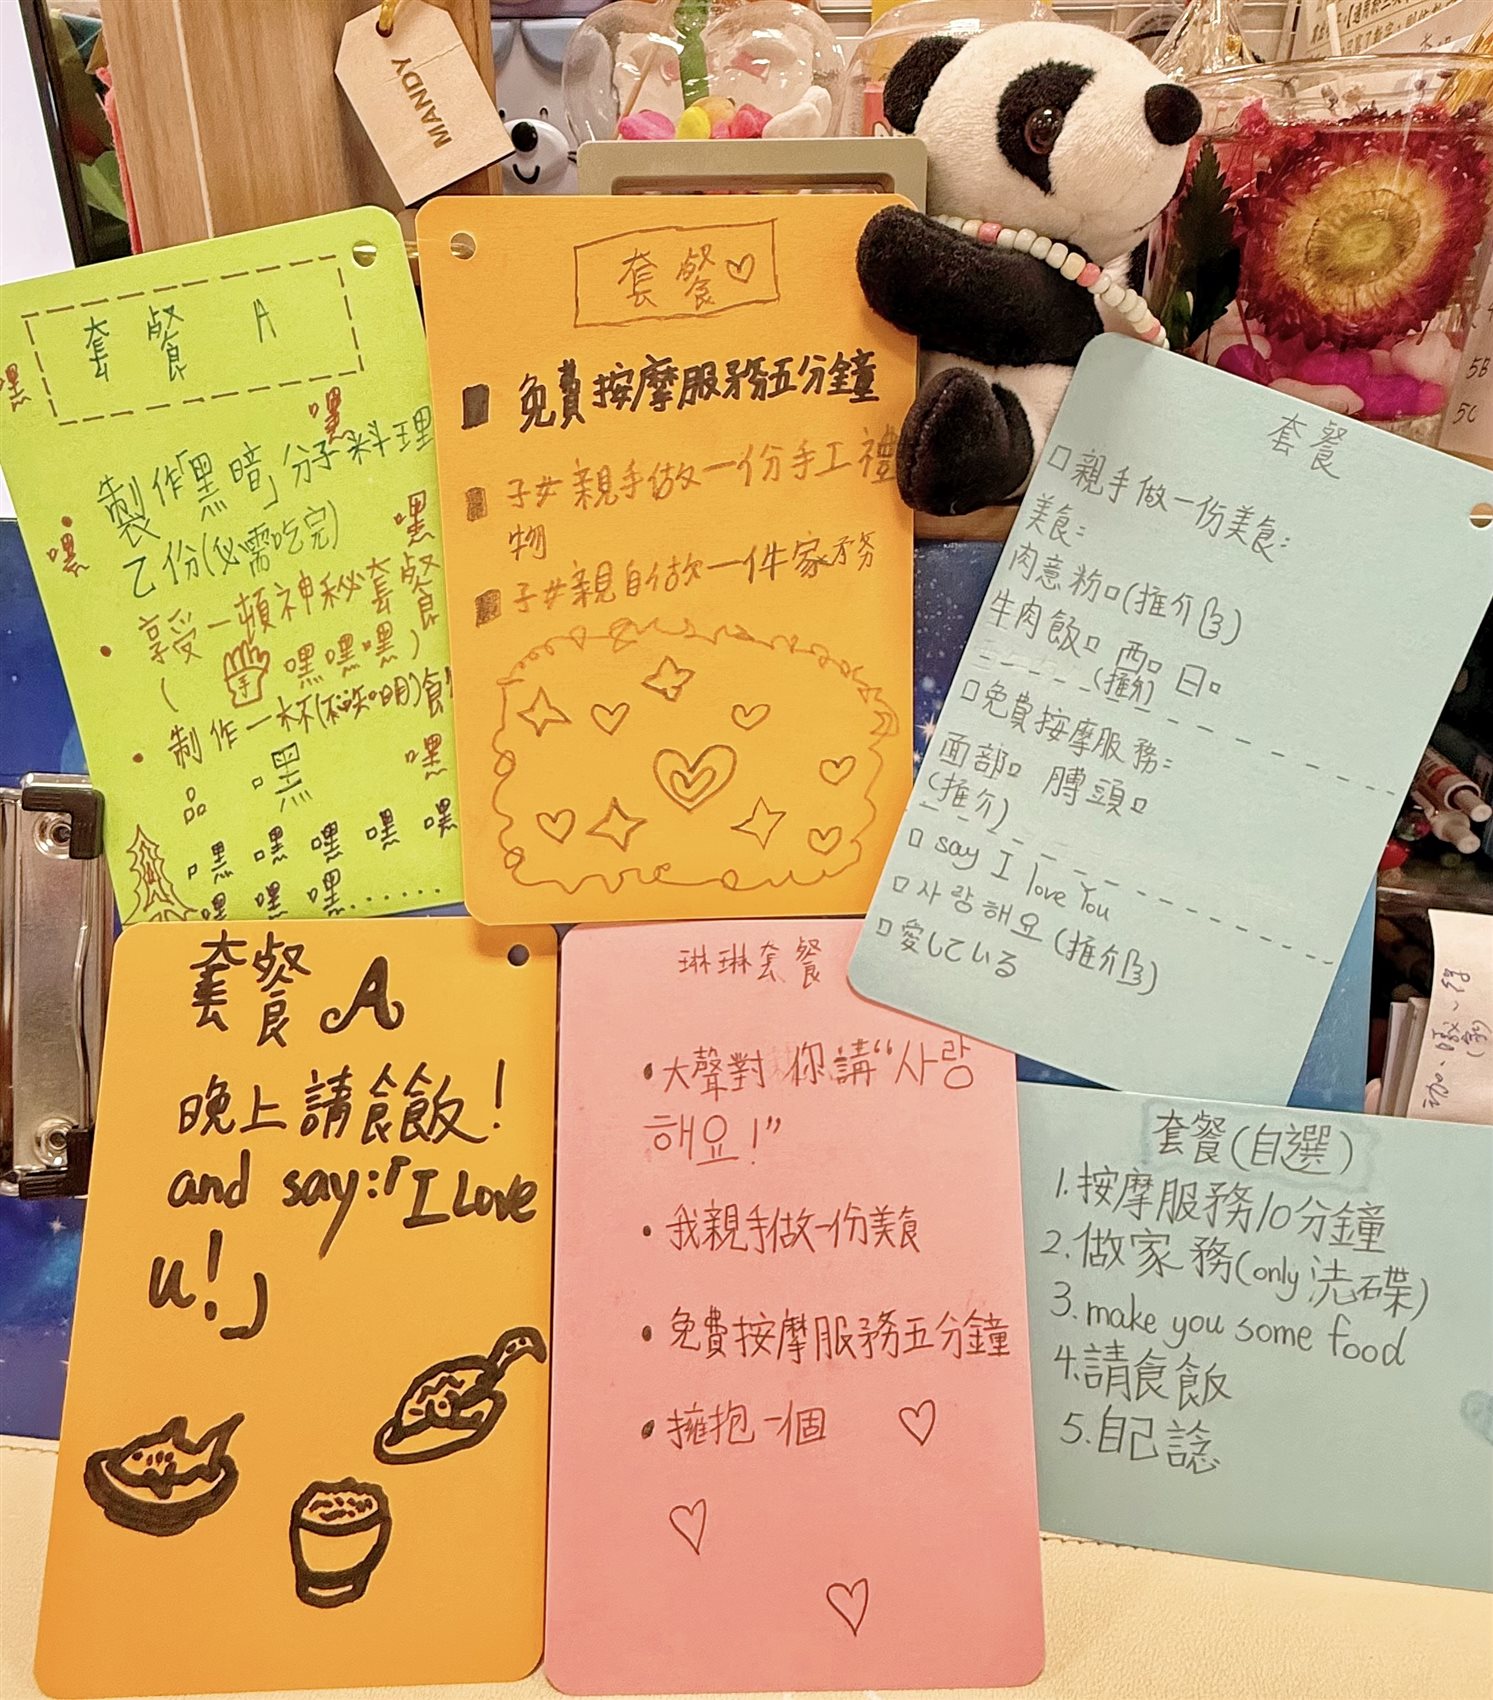 MANDY
套餐 A
嘿
嘿
製作「黑暗」分子料理
乙份(必需吃完)
嘿
嘿
享受一頓神秘套餐
( 嘿嘿嘿)
制作一杯
品 嘿 嘿
嘿 嘿 嘿 嘿 嘿
嘿 嘿 嘿......
套餐♡
免費按摩服務五分鐘
子女親手做一份手工禮
物
子女親自做一件家務
套餐
□親手做一份美食:
美食:
肉意粉□(推介👍)
牛肉飯□ 西□ 日□
(推介)
□免費按摩服務:
面部□ 膊頭□
(推介)
□ say I love You
□ 사랑해요 (推介👍)
□ 愛している
5B
5C
套餐 A
晚上請食飯!
and say:「I Love
u!」
琳琳套餐
•大聲對你講“사랑
해요!”
•我親手做一份美食
•免費按摩服務五分鐘
•擁抱一個
套餐(自選)
1.按摩服務10分鐘
2.做家務(only 洗碟)
3. make you some food
4.請食飯
5.自己諗